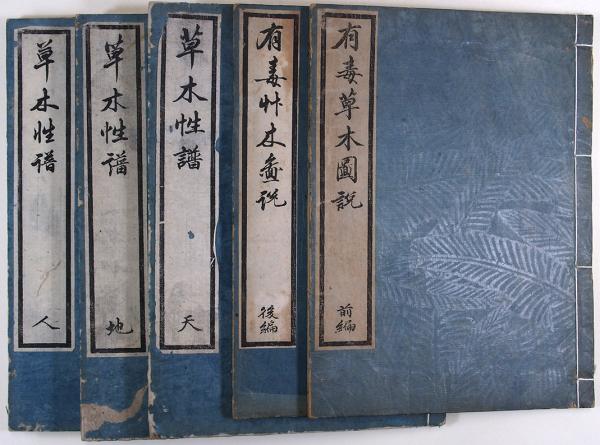 有毒草木圖説
前編
有毒艸木圖説
後編
草木性譜
天
草木性譜
地
草木性譜
人